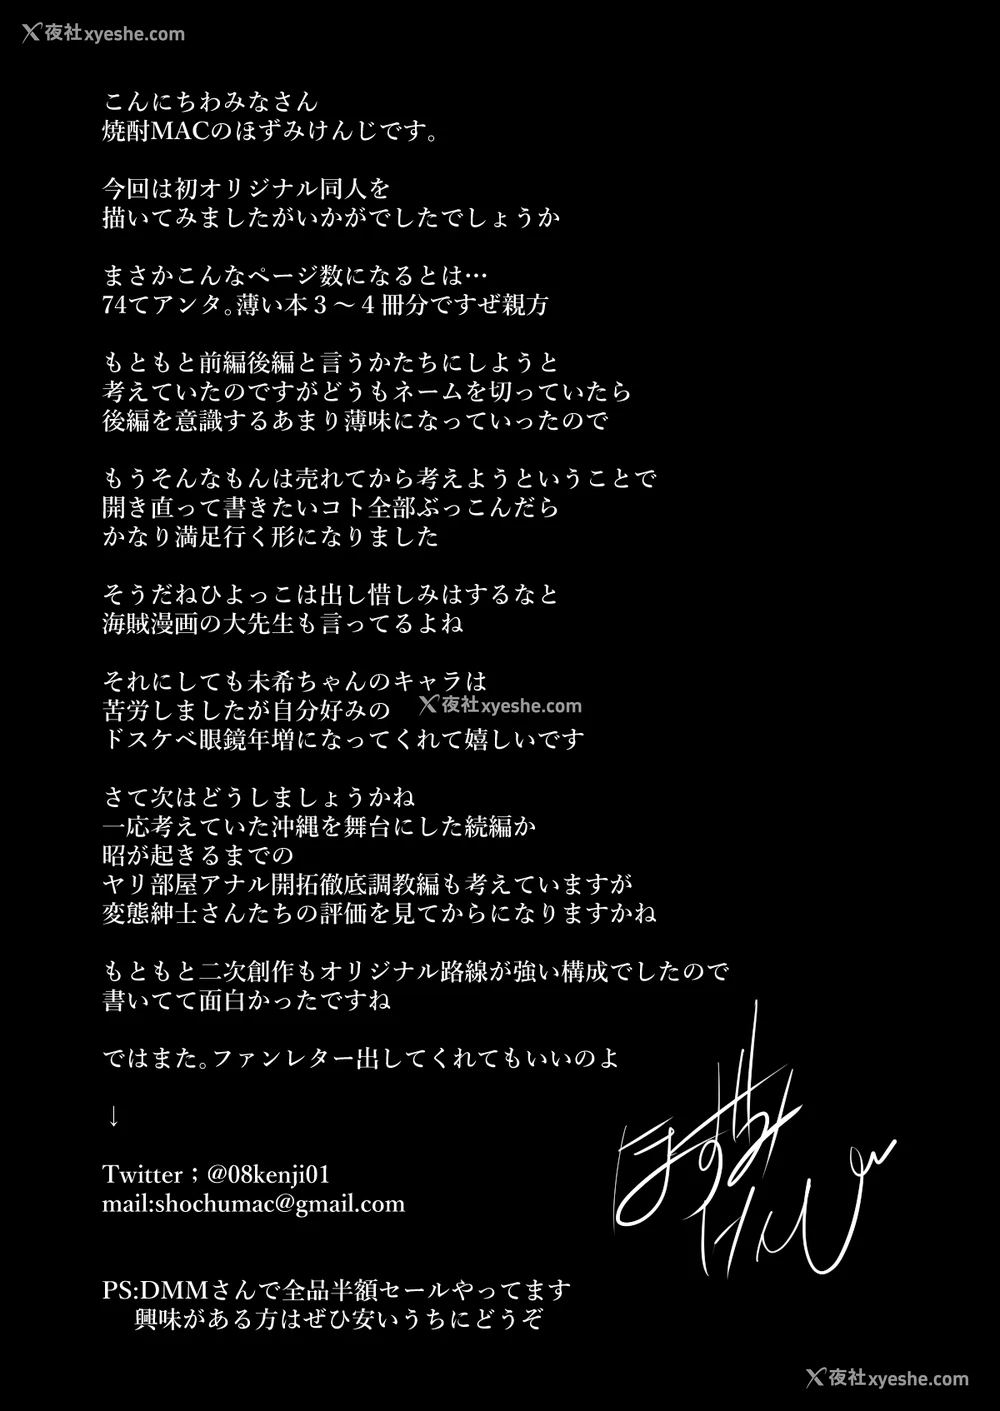 X夜社xyeshe.com
こんにちわみなさん
焼酎MACのほずみけんじです。
今回は初オリジナル同人を
描いてみましたがいかがでしたでしょうか
まさかこんなページ数になるとは…
74てアンタ。薄い本３～４冊分ですぜ親方
もともと前編後編と言うかたちにしようと
考えていたのですがどうもネームを切っていたら
後編を意識するあまり薄味になっていったので
もうそんなもんは売れてから考えようということで
開き直って書きたいコト全部ぶっこんだら
かなり満足行く形になりました
そうだねひよっこは出し惜しみはするなと
海賊漫画の大先生も言ってるよね
それにしても未希ちゃんのキャラは
苦労しましたが自分好みの
X夜社xyeshe.com
ドスケベ眼鏡年増になってくれて嬉しいです
さて次はどうしましょうかね
一応考えていた沖縄を舞台にした続編か
昭が起きるまでの
ヤリ部屋アナル開拓徹底調教編も考えていますが
変態紳士さんたちの評価を見てからになりますかね
もともと二次創作もオリジナル路線が強い構成でしたので
書いてて面白かったですね
ではまた。ファンレター出してくれてもいいのよ
↓
ほずみ
けんじ
Twitter；@08kenji01
mail:shochumac@gmail.com
PS:DMMさんで全品半額セールやってます
興味がある方はぜひ安いうちにどうぞ
X夜社xyeshe.com